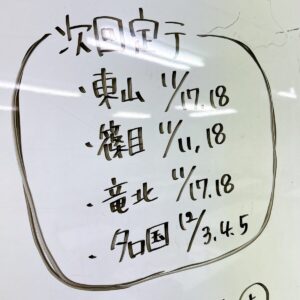 次回定テ
・東山 11/17.18
・篠目 11/11,18
・竜北 11/17.18
・知国 12/3.4.5